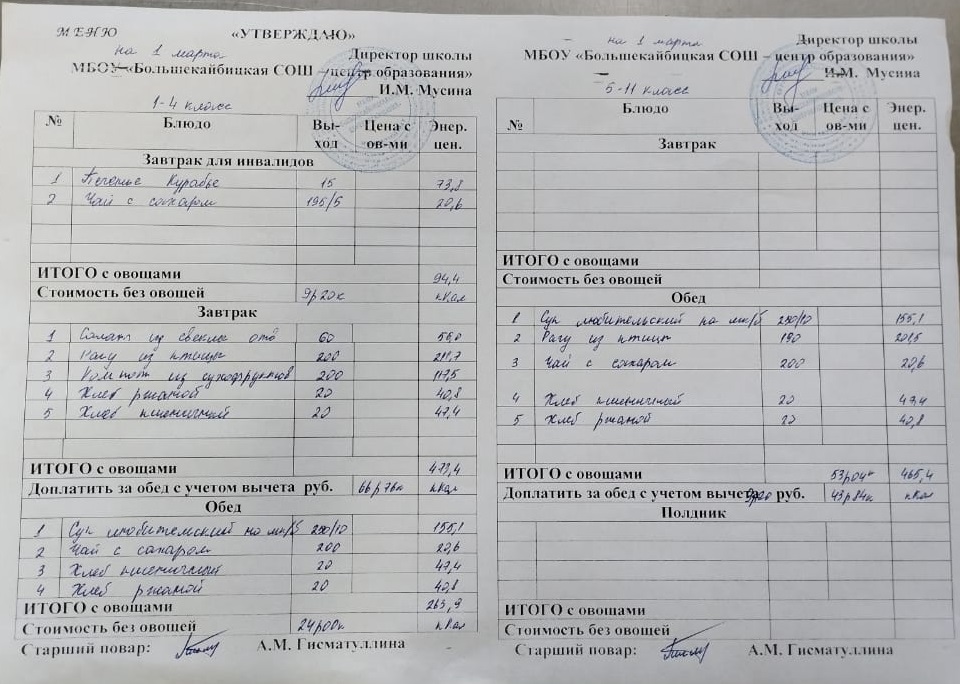 МЕНЮ «УТВЕРЖДАЮ»
на 1 марта Директор школы
МБОУ «Большекайбицкая СОШ – центр образования»
И.М. Мусина
1-4 класс
№ Блюдо Вы-ход Цена с ов-ми Энер. цен.
Завтрак для инвалидов
1 Печенье Курабье 15 73,8
2 Чай с сахаром 195/5 20,6
ИТОГО с овощами 94,4
Стоимость без овощей 9р20к кКал
Завтрак
1 Салат из свеклы 60
2 Рагу из птицы 200 211,7
3 Компот из сухофруктов 200 117,5
4 Хлеб ржаной 20 40,8
5 Хлеб пшеничный 20 47,4
ИТОГО с овощами 473,4
Доплатить за обед с учетом вычета руб. 66р76к кКал
Обед
1 Суп любительский на мк/б 250/10 155,1
2 Чай с сахаром 200 20,6
3 Хлеб пшеничный 20 47,4
4 Хлеб ржаной 20 40,8
ИТОГО с овощами 263,9
Стоимость без овощей 24р00к кКал
Старший повар: А.М. Гисматуллина
на 1 марта Директор школы
МБОУ «Большекайбицкая СОШ – центр образования»
И.М. Мусина
5-11 класс
№ Блюдо Вы-ход Цена с ов-ми Энер. цен.
Завтрак
ИТОГО с овощами
Стоимость без овощей
Обед
1 Суп любительский на мк/б 250/10 155,1
2 Рагу из птицы 190 201,5
3 Чай с сахаром 200 20,6
4 Хлеб пшеничный 20 47,4
5 Хлеб ржаной 20 40,8
ИТОГО с овощами 53р04к 465,4
Доплатить за обед с учетом вычета 9р20 руб. 43р84к кКал
Полдник
ИТОГО с овощами
Стоимость без овощей
Старший повар: А.М. Гисматуллина